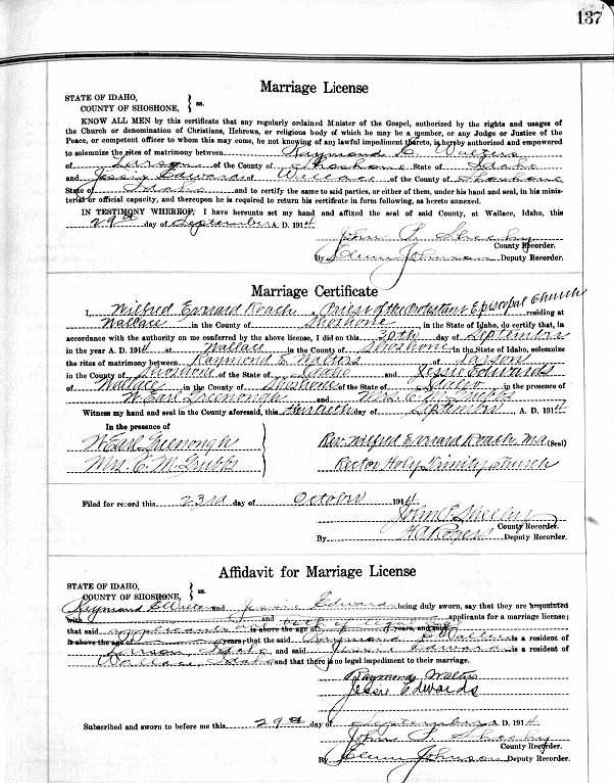 137
Marriage License
STATE OF IDAHO,
COUNTY OF SHOSHONE, } ss.
KNOW ALL MEN by this certificate that any regularly ordained Minister of the Gospel, authorized by the rights and usages of
the Church or denomination of Christians, Hebrews, or religious body of which he may be a member, or any Judge or Justice of the
Peace, or competent officer to whom this may come, he not knowing of any lawful impediment thereto, is hereby authorized and empowered
to solemnize the rites of matrimony between Raymond E. Walters
of Larson of the County of Shoshone State of Idaho
and Jessie Edwards of Wallace of the County of Shoshone
State of Idaho and to certify the same to said parties, or either of them, under his hand and seal, in his minis-
terial or official capacity, and thereupon he is required to return his certificate in form following, as hereto annexed.
IN TESTIMONY WHEREOF, I have hereunto set my hand and affixed the seal of said County, at Wallace, Idaho, this
29th day of September A. D. 1914
John P. Sheehy
County Recorder.
By Johnson Deputy Recorder.
Marriage Certificate
I, Wilfred Evrard Roach a Priest of the Protestant Episcopal Church residing at
Wallace in the County of Shoshone in the State of Idaho, do certify that, in
accordance with the authority on me conferred by the above license, I did on this 30th day of September
in the year A. D. 1914 at Wallace in the County of Shoshone in the State of Idaho, solemnize
the rites of matrimony between Raymond E. Walters of Larson
in the County of Shoshone of the State of Idaho and Jessie Edwards
of Wallace in the County of Shoshone of the State of Idaho in the presence of
W. Earl Greenough and Mrs. E. M. Grubbs
Witness my hand and seal in the County aforesaid, this thirtieth day of September, A. D. 1914
In the presence of
W. Earl Greenough
Mrs. E. M. Grubbs
Rev. Wilfred Evrard Roach M.A. (Seal)
Rector Holy Trinity Church
Filed for record this 23rd day of October 1914
John P. Sheehy
County Recorder.
By Deputy Recorder.
Affidavit for Marriage License
STATE OF IDAHO,
COUNTY OF SHOSHONE, } ss.
Raymond E Walters and Jessie Edwards being duly sworn, say that they are acquainted
with and applicants for a marriage license;
that said applicants and both of legal age is above the age of years, and
is above the age of years; that the said Raymond E Walters is a resident of
Larson, Idaho and said Jessie Edwards is a resident of
Wallace, Idaho and that there is no legal impediment to their marriage.
Raymond Walters
Jessie Edwards
Subscribed and sworn to before me this 29th day of September A. D. 1914
John P. Sheehy
County Recorder.
By Johnson Deputy Recorder.